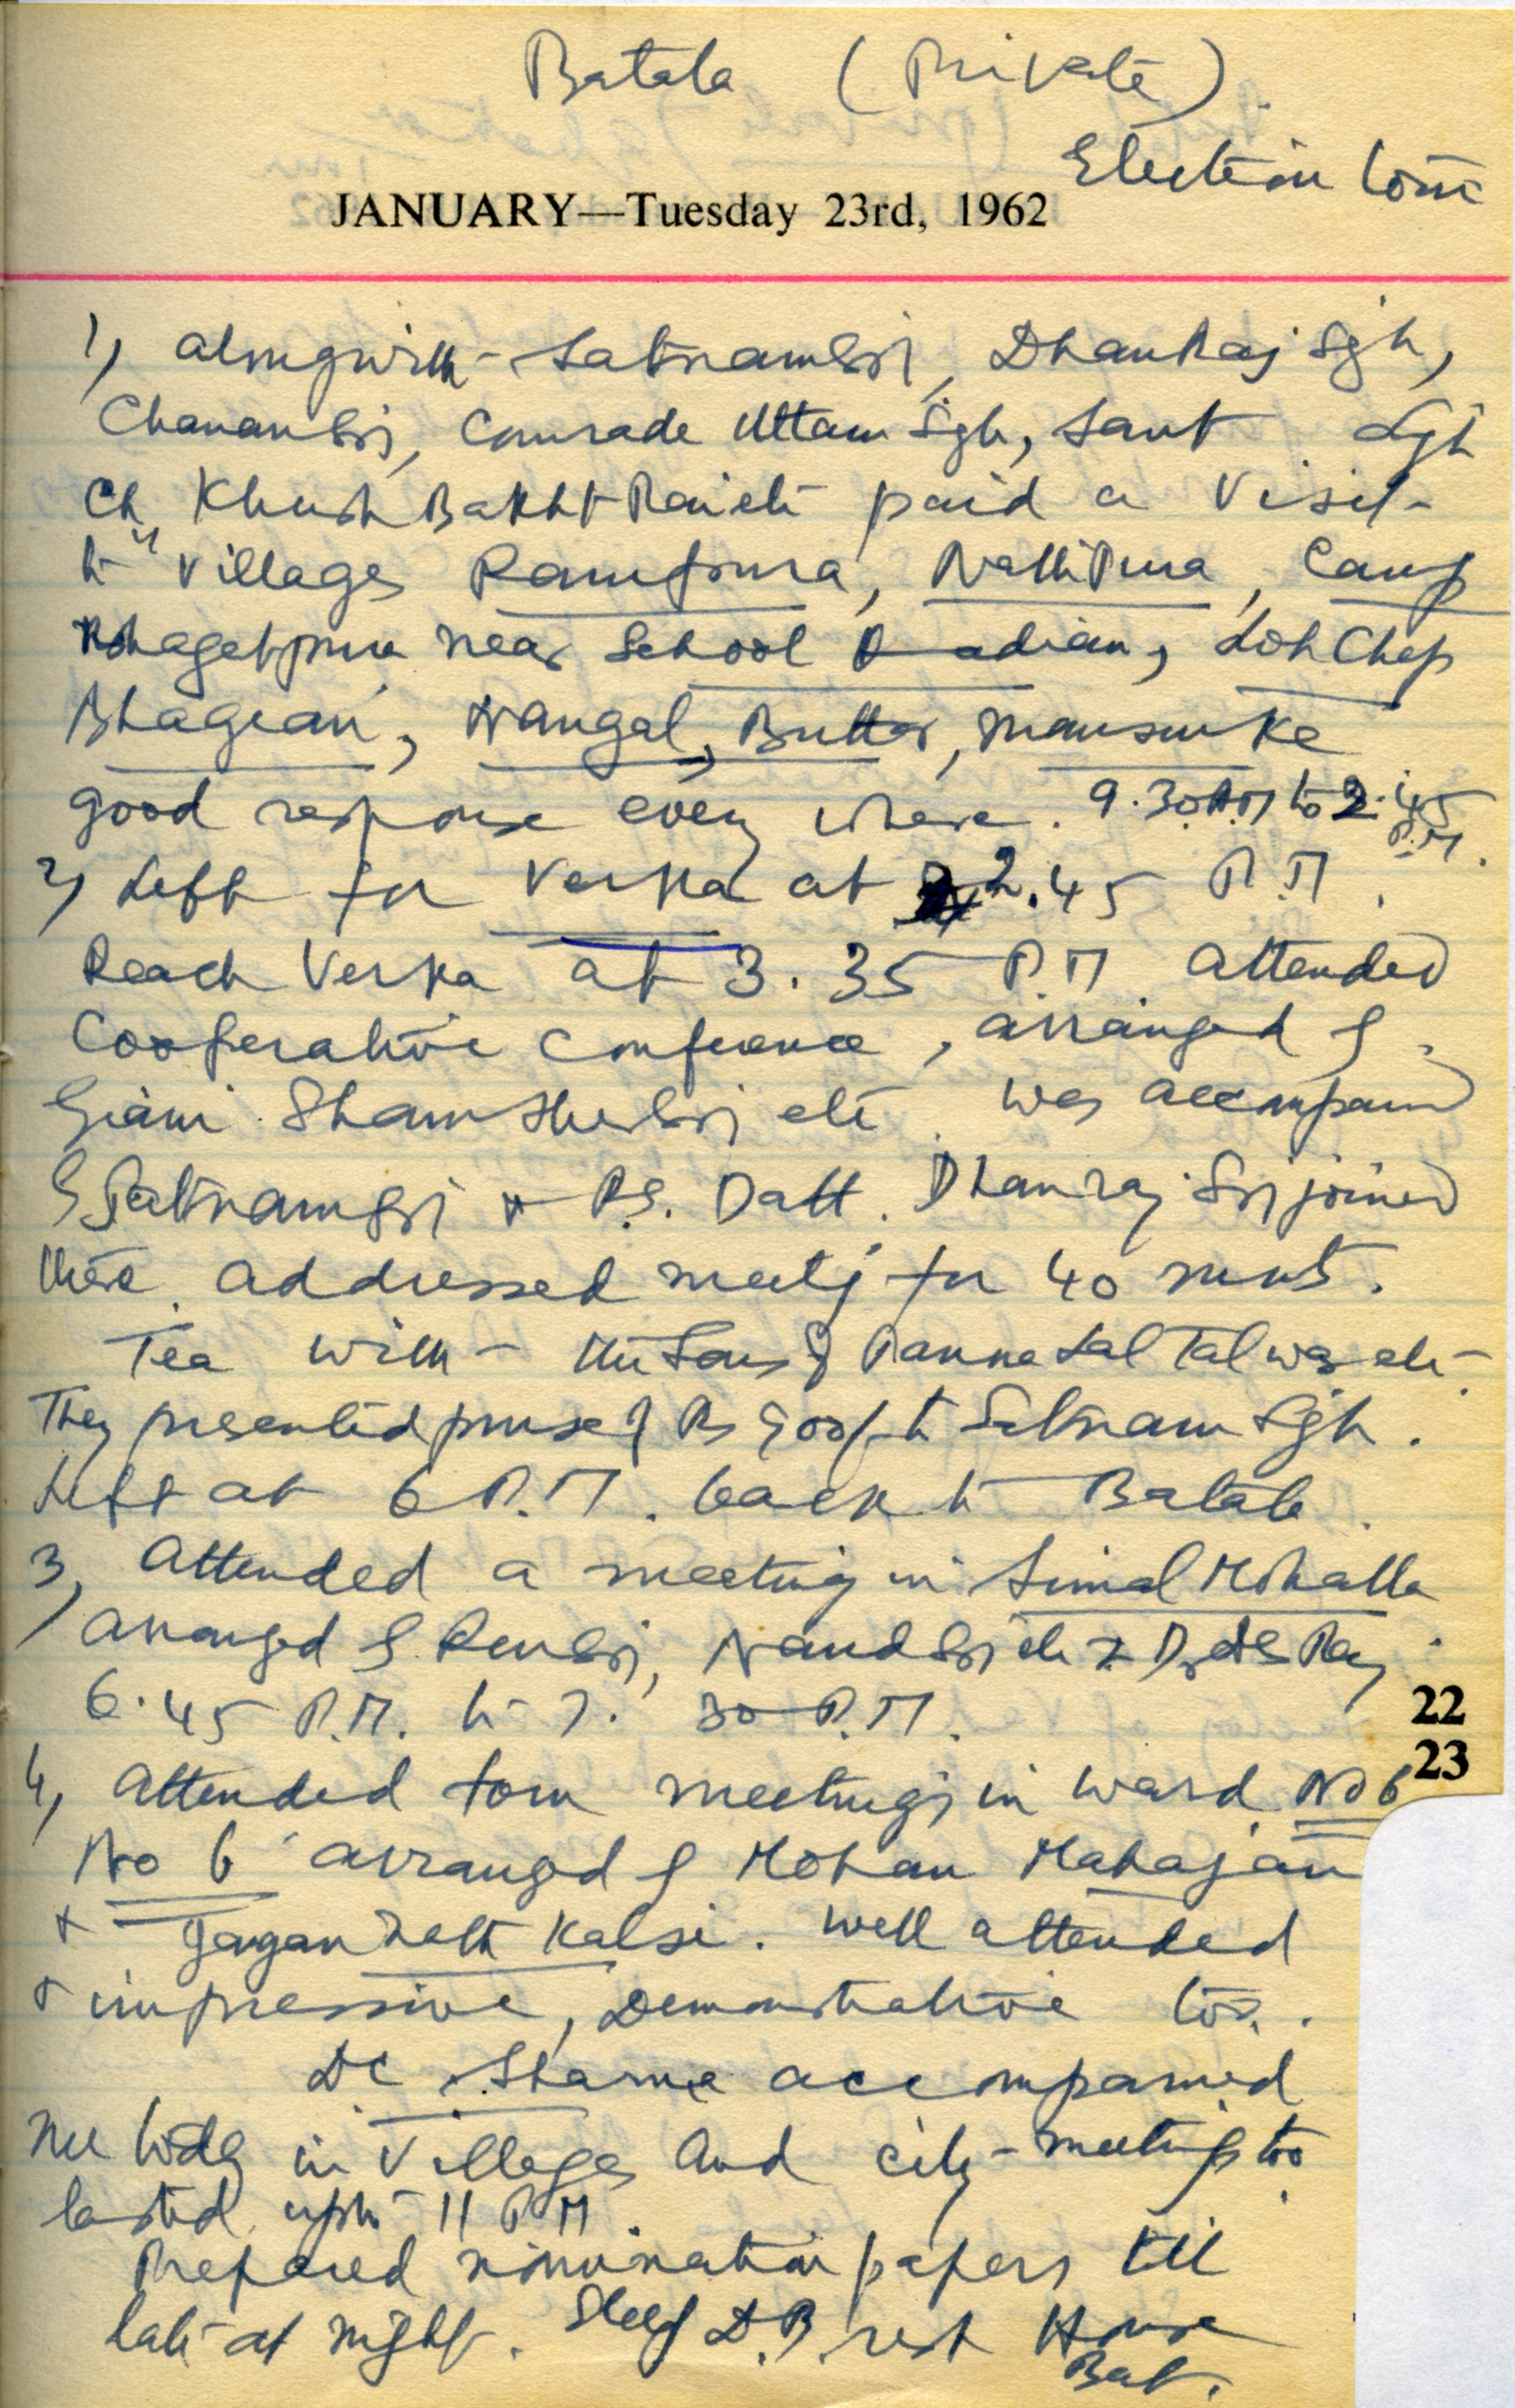 Batala (Private)
Election tour
JANUARY—Tuesday 23rd, 1962
1) alongwith Satnam Singh, Dhanraj Sgh,
Chanan Singh, Comrade Uttam Sgh, Sant Sgh
Ch Khush Bakht Rai etc paid a visit
to villages Rampura, NathPura, Camp
Bhagatpura near School Qadian, Loh Chap
Bhagian, Nangal, Butter, Mansurke
good response every where. 9.30 A.M to 2.45 P.M.
2) Left for Verka at 2.45 P.M.
Reach Verka at 3.35 P.M. attended
Cooperative Conference, arranged by
Giani Shamsher Singh etc. was accompanied
by Satnam Singh & P.S. Datt. Dhanraj Singh joined
there. addressed meetg for 40 mnts.
Tea with the Sons of Panna Lal Talwar etc.
They presented purse of Rs 500/- to Satnam Sgh.
Left at 6 P.M. back to Batala.
3) Attended a meeting in Simal Mohalla
arranged by Singh, Nand Singh etc
6.45 P.M. to 7.30 P.M.
22
23
4) Attended four meetings in ward No 6
No 6 arranged by Mohan Mahajan
& Jagan Nath Kalsi. Well attended
& impressive, Demonstrative too.
DC Sharma accompanied
me today in Villages and city-meetings too
lasted upto 11 P.M.
Prepared nomination papers till
late at night. Sleep D.B. rest House
Bat.